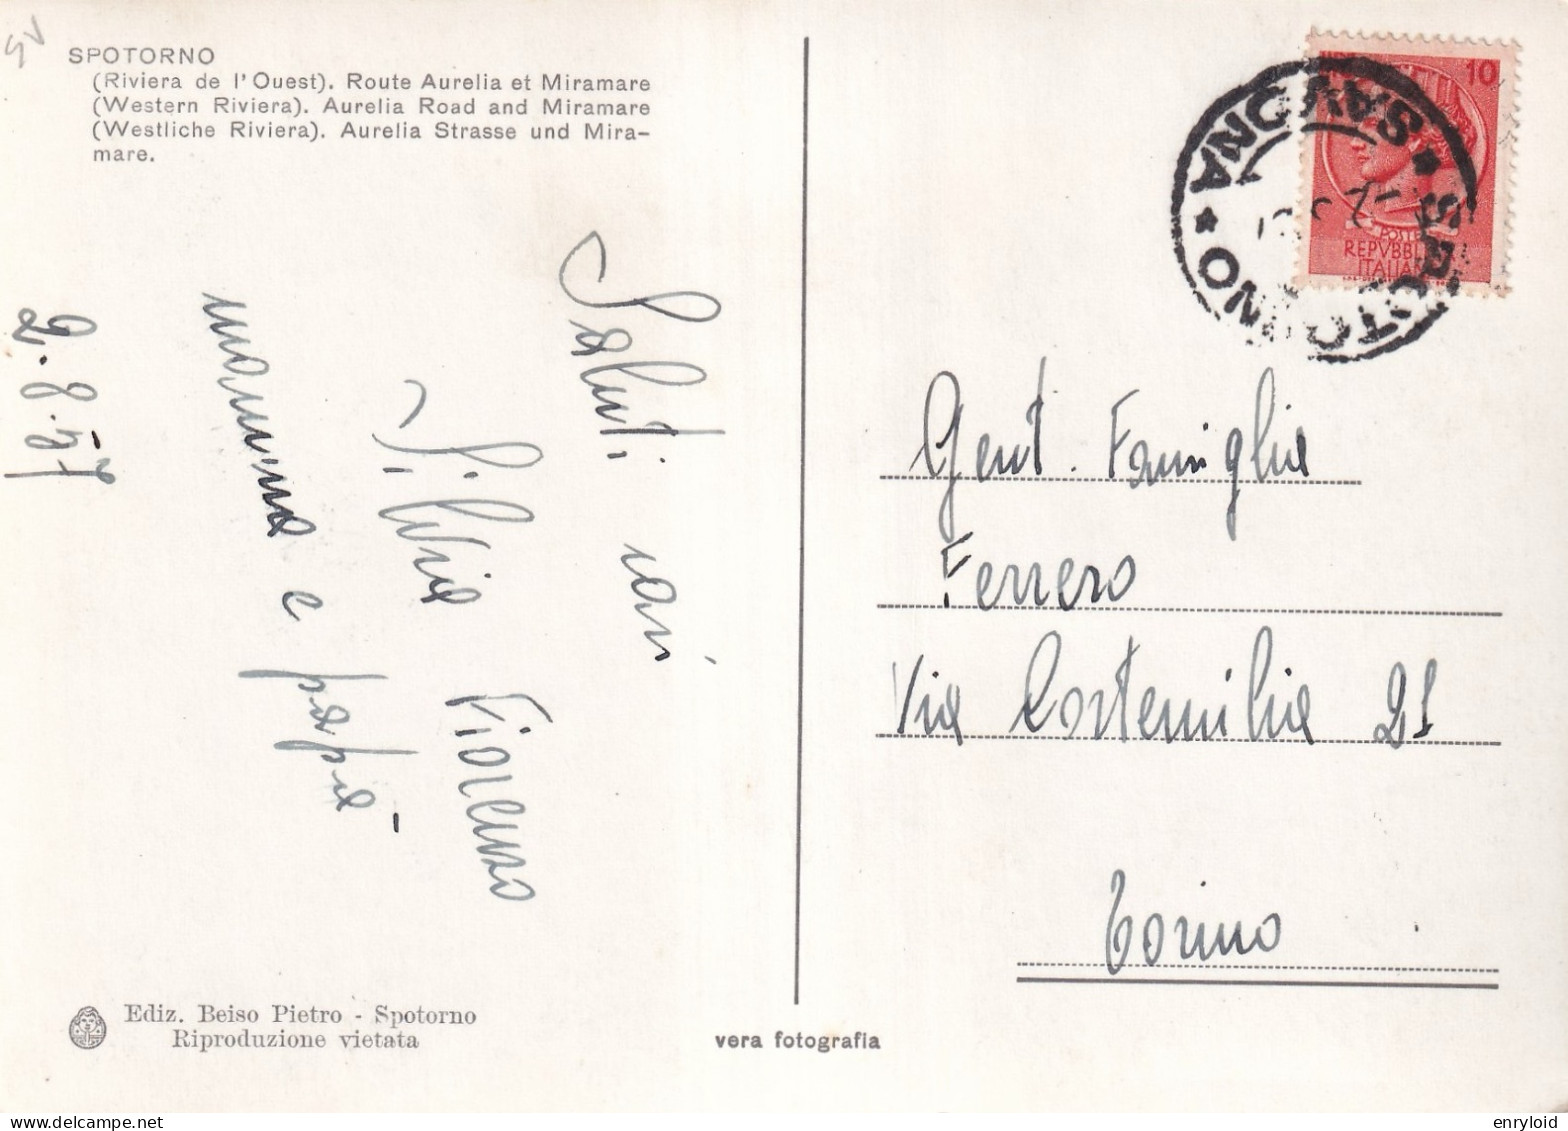 SV
SPOTORNO
(Riviera de l'Ouest). Route Aurelia et Miramare
(Western Riviera). Aurelia Road and Miramare
(Westliche Riviera). Aurelia Strasse und Mira-
mare.
Saluti cari
Silvia Fiorenzo
mamma e papà
2.8.57
Ediz. Beiso Pietro - Spotorno
Riproduzione vietata
vera fotografia
10
POSTE
REPVBBLI
ITALIAN
SPOTORNO * SAVONA *
Gent. Famiglia
Ferrero
Via Cortemilia 21
Torino
enryloid